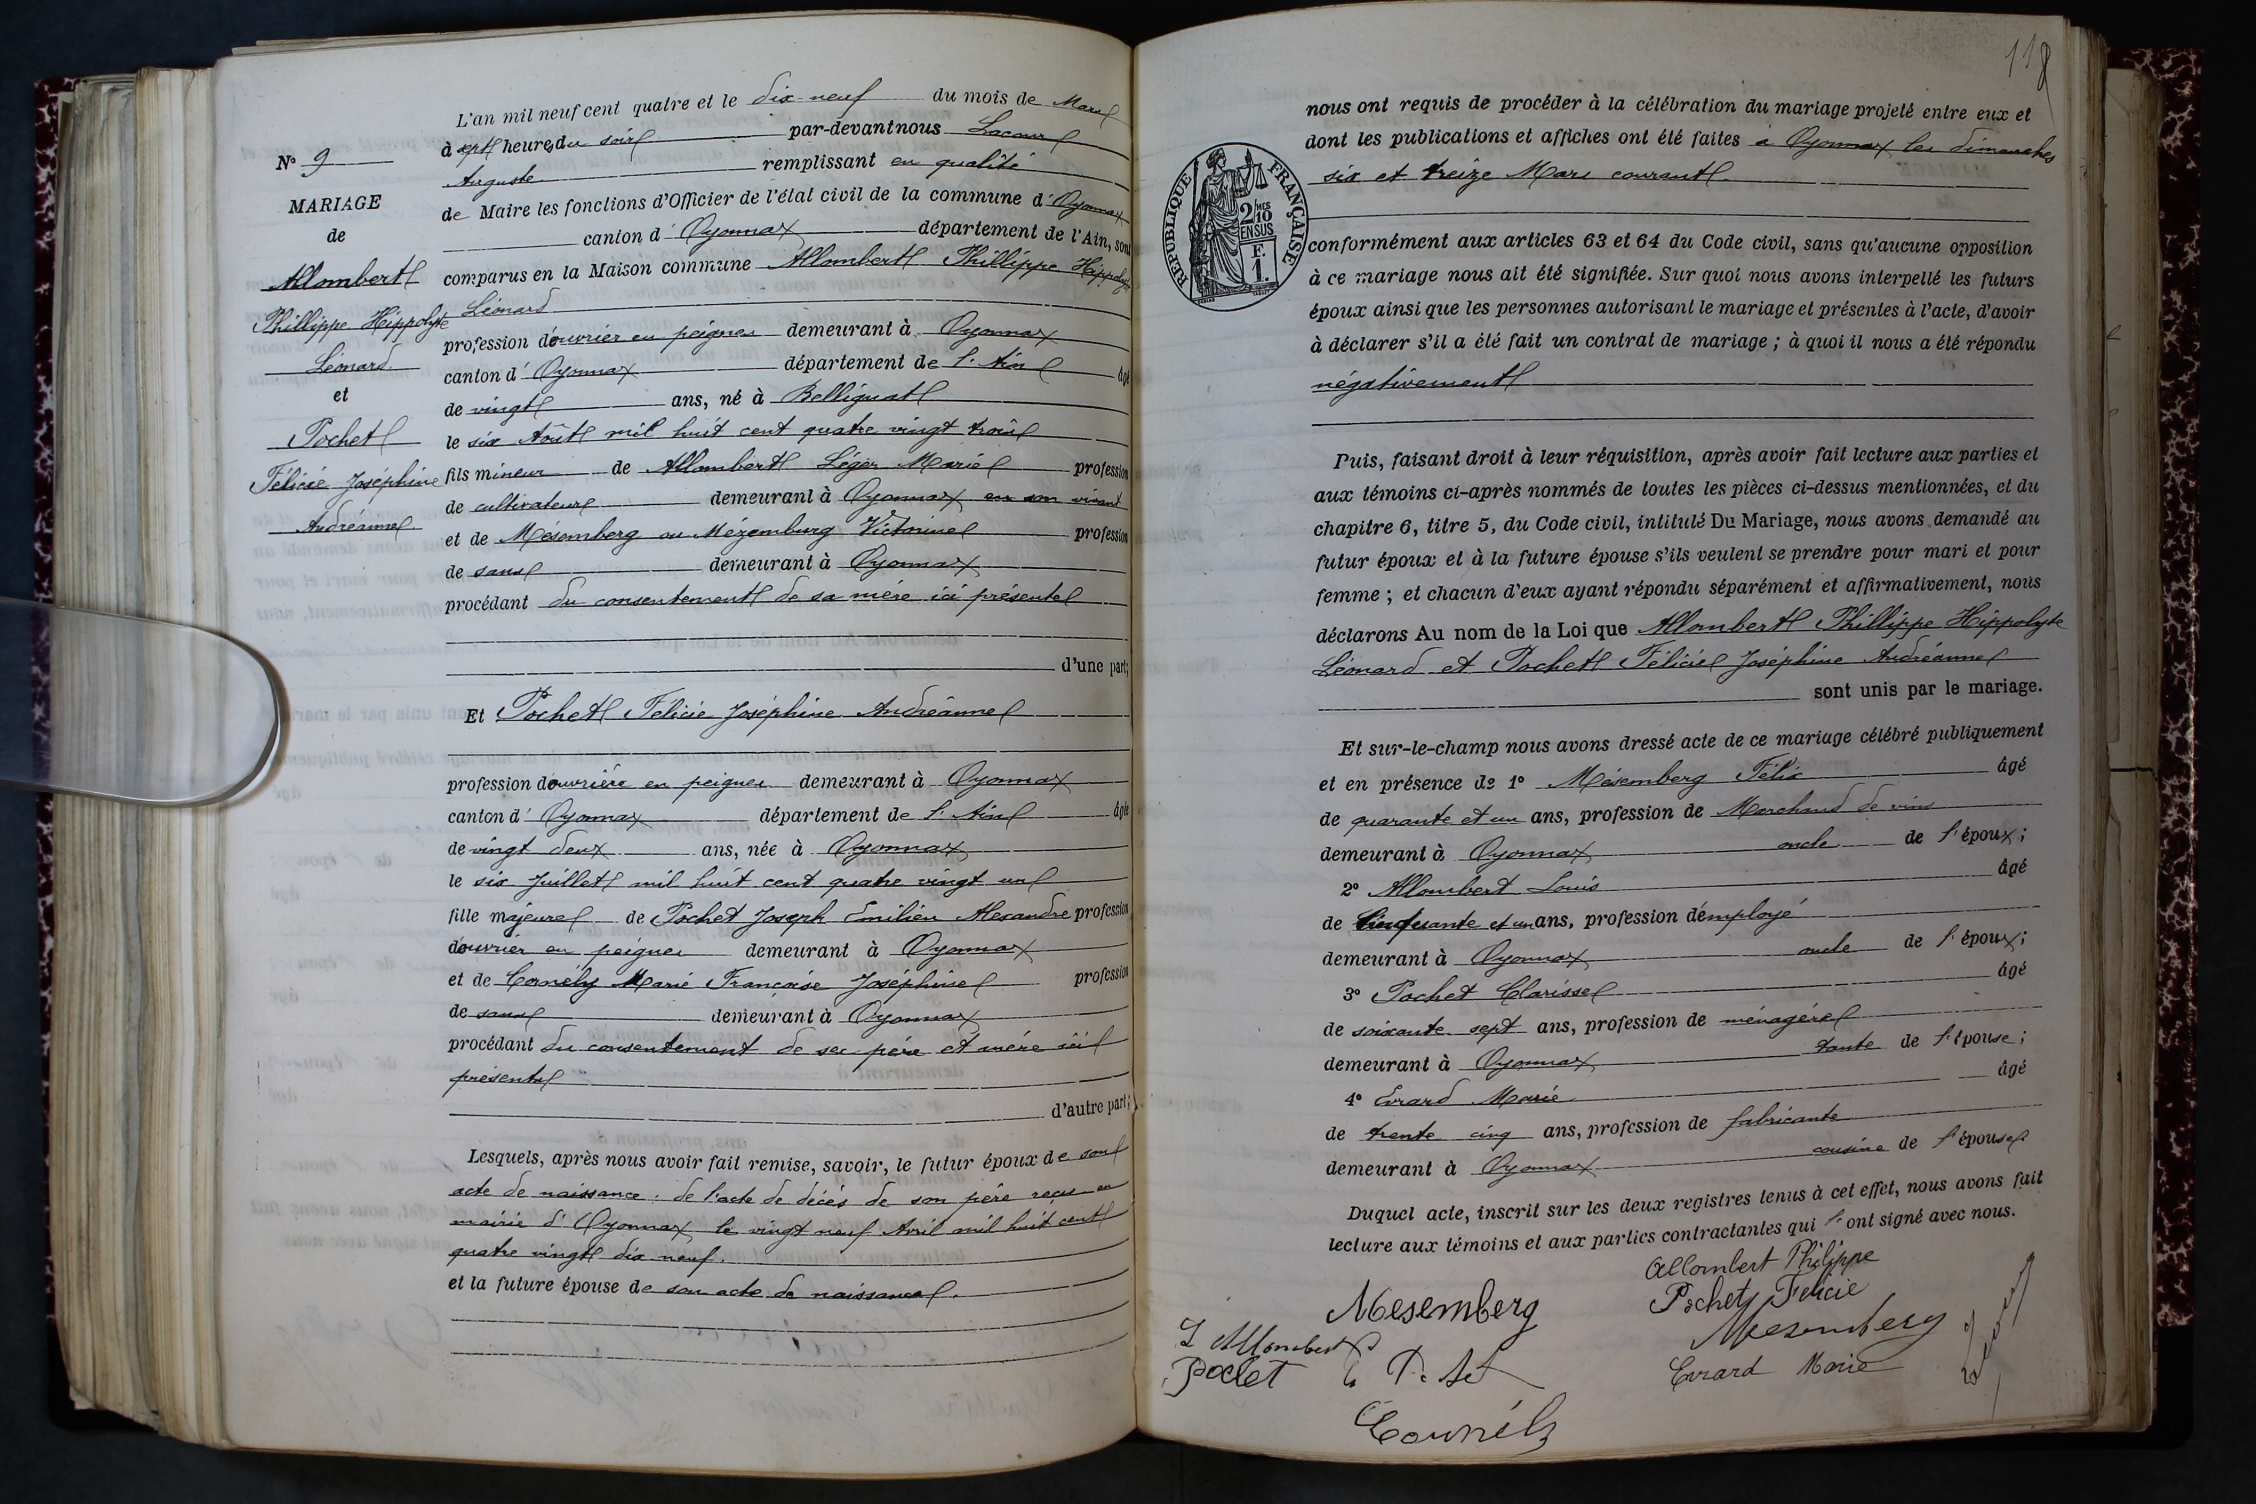 N° 9
MARIAGE
de
Allombert
Phillippe Hippolyte
Léonard
et
Pochet
Félicie Joséphine
Andréanne
L'an mil neuf cent quatre et le dix-neuf du mois de Mars
à sept heures du soir par-devant nous Lacour
Auguste remplissant en qualité
de Maire les fonctions d'Officier de l'état civil de la commune d'Oyonnax
canton d'Oyonnax département de l'Ain, sont
comparus en la Maison commune Allombert Phillippe Hippolyte
Léonard
profession d'ouvrier en peignes demeurant à Oyonnax
canton d'Oyonnax département de l'Ain âgé
de vingt ans, né à Bellignat
le six Août mil huit cent quatre vingt trois
fils mineur de Allombert Léger Marie profession
de cultivateur demeurant à Oyonnax en son vivant
et de Mésemberg ou Mézemburg Victorine profession
de sans demeurant à Oyonnax
procédant du consentement de sa mère ici présente
d'une part;
Et Pochet Félicie Joséphine Andréanne
profession d'ouvrière en peignes demeurant à Oyonnax
canton d'Oyonnax département de l'Ain âgée
de vingt deux ans, née à Oyonnax
le six Juillet mil huit cent quatre vingt un
fille majeure de Pochet Joseph Emilien Alexandre profession
d'ouvrier en peignes demeurant à Oyonnax
et de Cornély Marie Françoise Joséphine profession
de sans demeurant à Oyonnax
procédant du consentement de ses père et mère ici
présents
d'autre part;
Lesquels, après nous avoir fait remise, savoir, le futur époux de son
acte de naissance, de l'acte de décès de son père reçus en
mairie d'Oyonnax le vingt neuf Avril mil huit cent
quatre vingt dix neuf.
et la future épouse de son acte de naissance.
118
nous ont requis de procéder à la célébration du mariage projeté entre eux et
dont les publications et affiches ont été faites à Oyonnax les dimanches
six et treize Mars courant
RÉPUBLIQUE FRANÇAISE
2/10MES
EN SUS
F.
1.
conformément aux articles 63 et 64 du Code civil, sans qu'aucune opposition
à ce mariage nous ait été signifiée. Sur quoi nous avons interpellé les futurs
époux ainsi que les personnes autorisant le mariage et présentes à l'acte, d'avoir
à déclarer s'il a été fait un contrat de mariage; à quoi il nous a été répondu
négativement
Puis, faisant droit à leur réquisition, après avoir fait lecture aux parties et
aux témoins ci-après nommés de toutes les pièces ci-dessus mentionnées, et du
chapitre 6, titre 5, du Code civil, intitulé Du Mariage, nous avons demandé au
futur époux et à la future épouse s'ils veulent se prendre pour mari et pour
femme; et chacun d'eux ayant répondu séparément et affirmativement, nous
déclarons Au nom de la Loi que Allombert Phillippe Hippolyte
Léonard et Pochet Félicie Joséphine Andréanne
sont unis par le mariage.
Et sur-le-champ nous avons dressé acte de ce mariage célébré publiquement
et en présence de 1° Mésemberg Félix âgé
de quarante et un ans, profession de Marchand de vins
demeurant à Oyonnax oncle de l'époux;
2° Allombert Louis âgé
de Cinquante et un ans, profession d'employé
demeurant à Oyonnax oncle de l'époux;
3° Pochet Clarisse âgé
de soixante sept ans, profession de ménagère
demeurant à Oyonnax tante de l'épouse;
4° Evrard Marie âgé
de trente cinq ans, profession de fabricante
demeurant à Oyonnax cousine de l'épouse
Duquel acte, inscrit sur les deux registres tenus à cet effet, nous avons fait
lecture aux témoins et aux parties contractantes qui l'ont signé avec nous.
Allombert Philippe
Mesemberg Pochet Félicie
L Allombert Mesemberg
Poclet Evrard Marie
Cornély